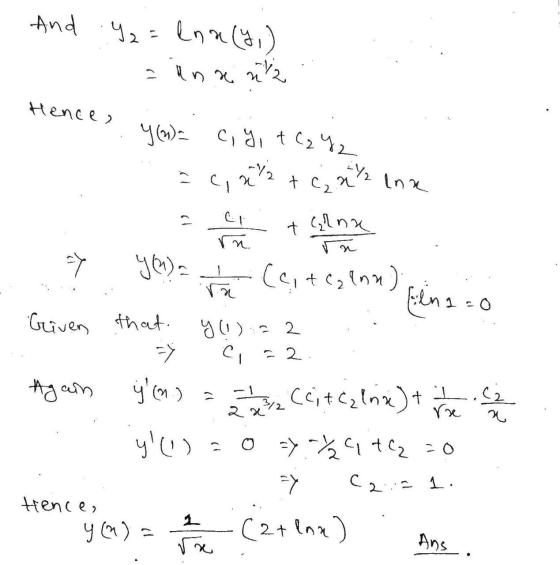 And y₂ = lnx(y₁)
= lnx x^-1/2
Hence,
y(x)= c₁y₁ + c₂y₂
= c₁ x^-1/2 + c₂ x^-1/2 lnx
= c₁/√x + c₂lnx/√x
=> y(x) = 1/√x (c₁ + c₂ lnx) [∵ln1 = 0
Given that. y(1) = 2
=> c₁ = 2.
Again y'(x) = -1/2x^3/2 (c₁+c₂lnx) + 1/√x . c₂/x
y'(1) = 0 => -1/2 c₁ + c₂ = 0
=> c₂ = 1.
Hence,
y(x) = 1/√x (2+lnx) Ans.